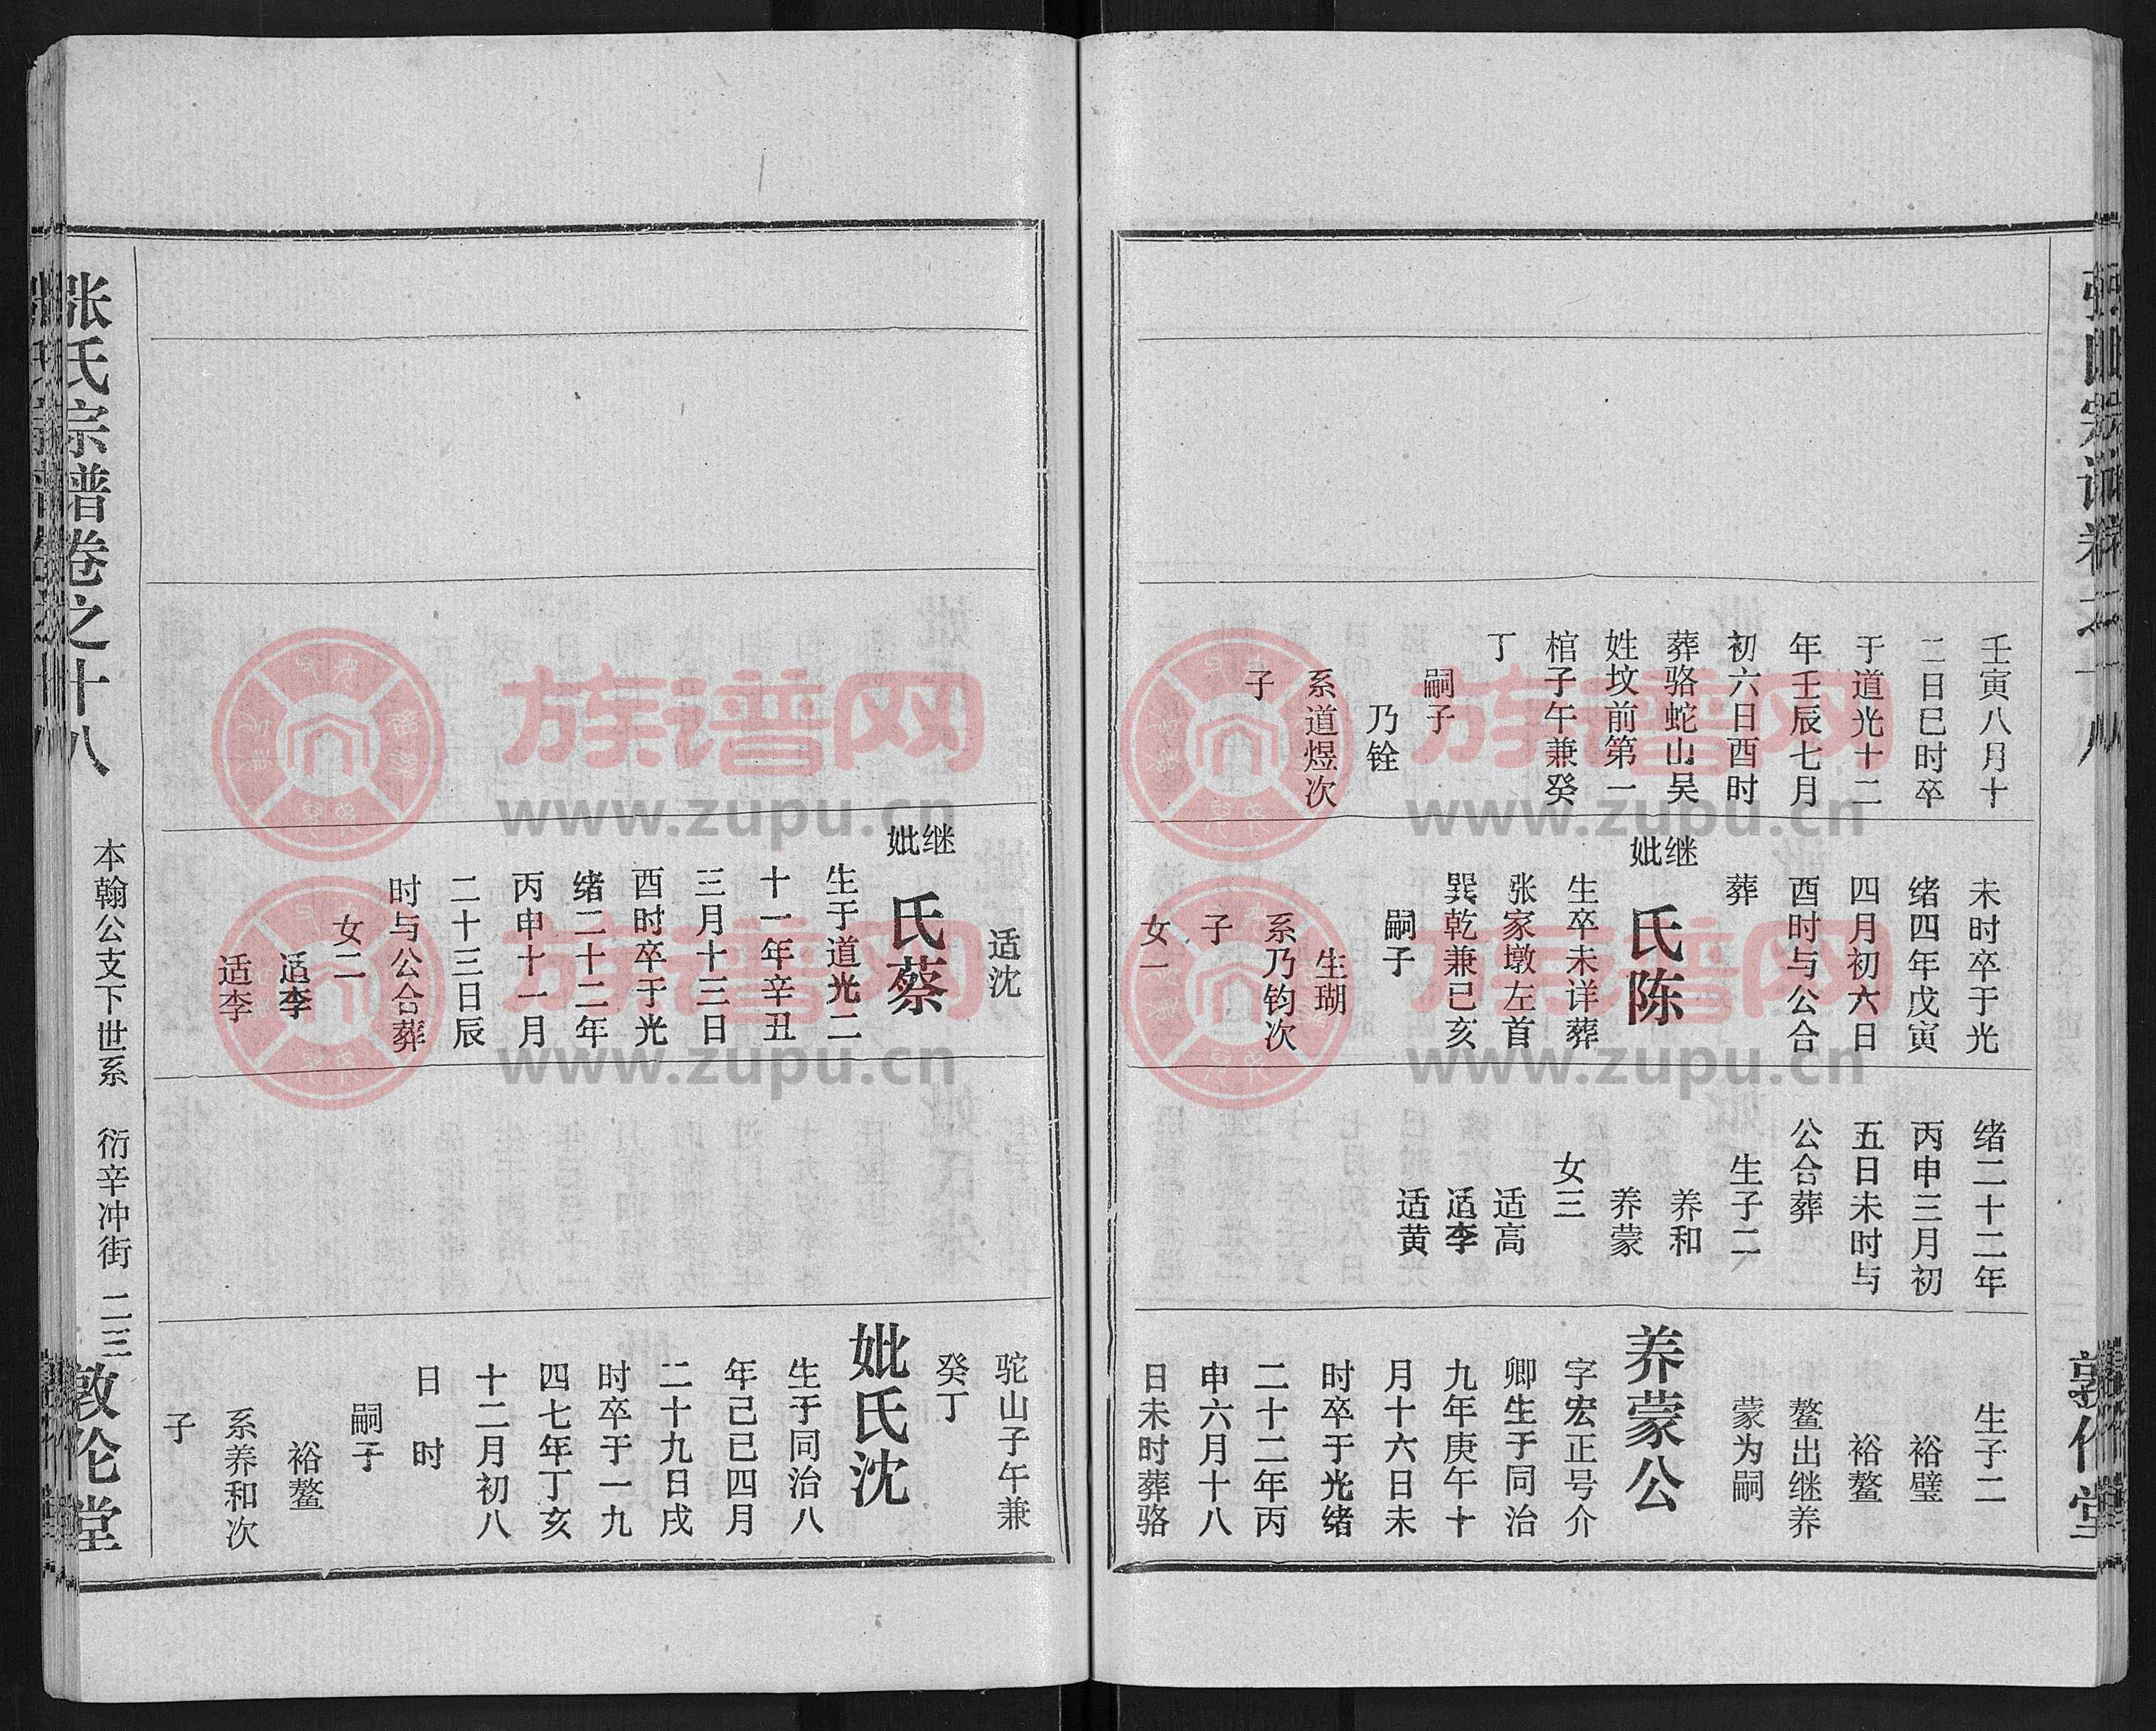 壬寅八月十
二日巳时卒
于道光十二
年壬辰七月
初六日酉时
葬骆蛇山吴
姓坟前第一
棺子午兼癸
丁
嗣子
乃铨
系道煜次
子
未时卒于光
绪四年戊寅
四月初六日
酉时与公合
葬
继妣
氏陈
生卒未详葬
张家墩左首
巽乾兼已亥
嗣子
生瑚
系乃钧次
子
女一
绪二十二年
丙申三月初
五日未时与
公合葬
生子二
养和
养蒙
女三
适高
适李
适黄
生子二
裕璧
裕鳌
鳌出继养
蒙为嗣
养蒙公
字宏正号介
卿生于同治
九年庚午十
月十六日未
时卒于光绪
二十二年丙
申六月十八
日未时葬骆
适沈
继妣
氏蔡
生于道光二
十一年辛丑
三月十三日
酉时卒于光
绪二十二年
丙申十一月
二十三日辰
时与公合葬
女二
适李
适李
驼山子午兼
癸丁
妣氏沈
生于同治八
年己巳四月
二十九日戌
时卒于一九
四七年丁亥
十二月初八
日 时
嗣子
裕鳌
系养和次
子
张氏宗谱卷之十八
本翰公支下世系
衍辛冲街
二三
敦伦堂
族谱网
www.zupu.cn
族谱网
www.zupu.cn
族谱网
www.zupu.cn
族谱网
www.zupu.cn